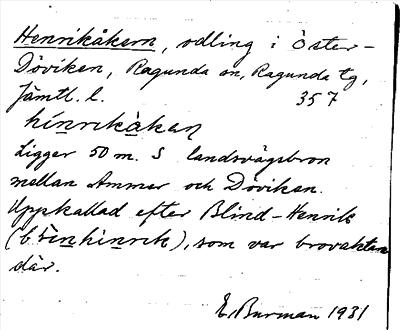 Henrikåkern, odling i Öster-
Döviken, Ragunda sn, Ragunda tg,
Jämtl. l. 357
hìnrikàkaɳ
Ligger 50 m. S landsvägsbron
mellan Ammer och Döviken.
Uppkallad efter Blind-Henrik
(hinrik), som var brovaktare
där.
E. Burman 1931